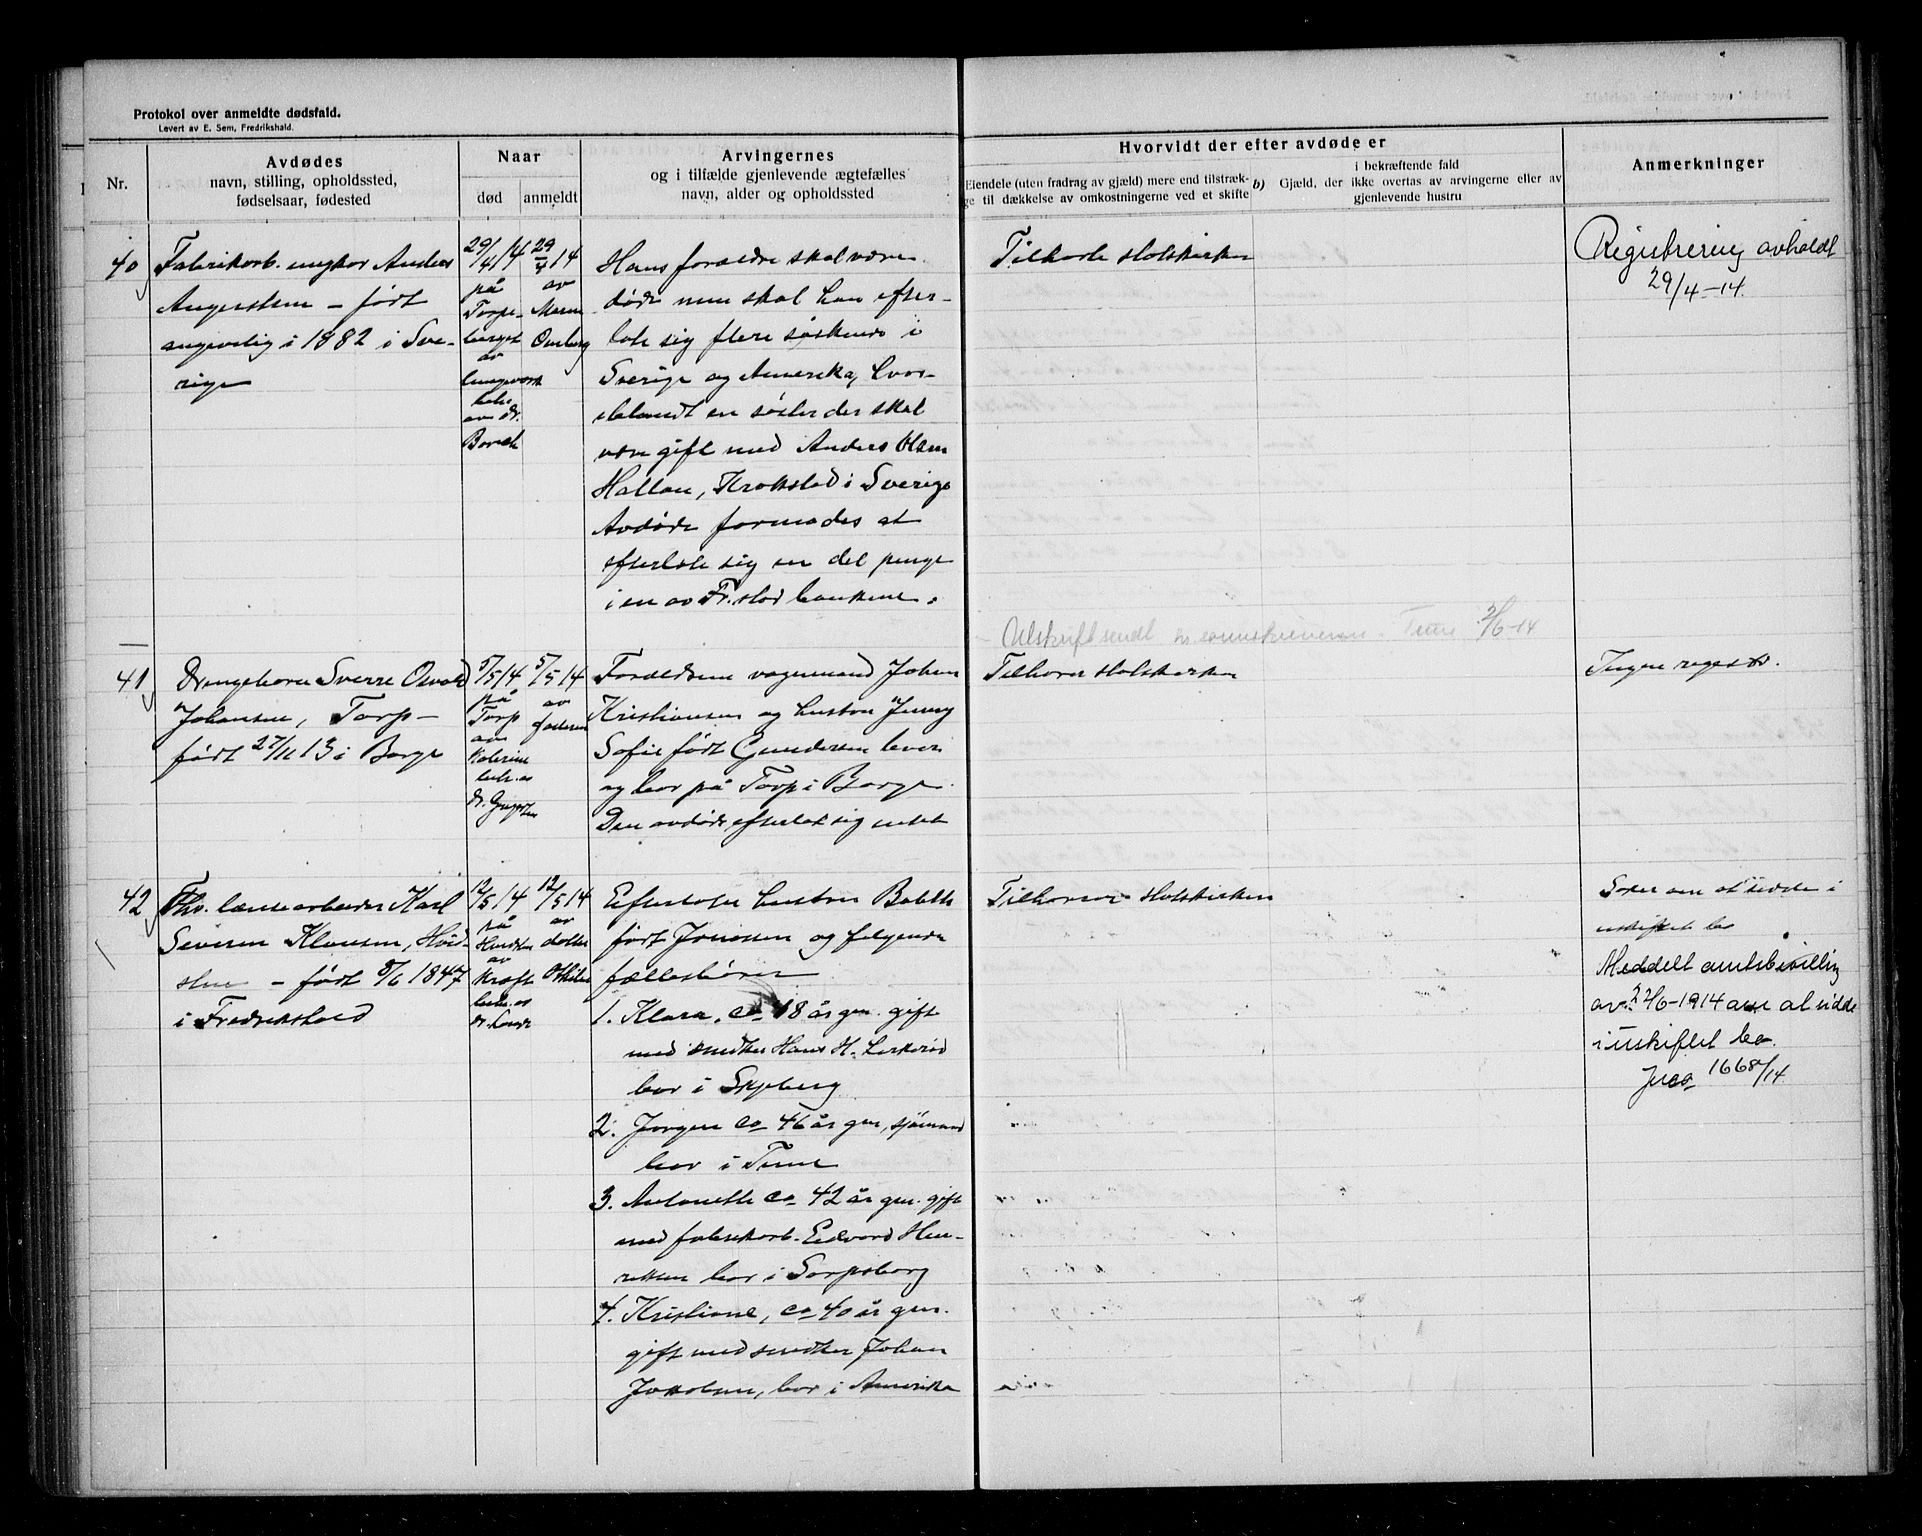 Protokol over anmeldte dødsfald.
Levert av E. Sem, Fredrikshald.
Nr.
Avdødes
navn, stilling, opholdssted,
fødselsaar, fødested
Naar
død
anmeldt
Arvingernes
og i tilfælde gjenlevende ægtefælles
navn, alder og opholdssted
Hvorvidt der efter avdøde er
Eiendele (uten fradrag av gjæld) mere end tilstræk-
ge til dækkelse av omkostningerne ved et skifte
b)
i bekræftende fald
Gjæld, der ikke overtas av arvingerne eller av
gjenlevende hustru
Anmerkninger
40
Fabrikarb. ungkar Anders
Angerstsen – født
angivelig i 1882 i Sve-
rige
29/4 14
på
Torpe-
berget
av
lungesvindsot
av dr.
29/4 14
av
Hans foræld​re skal være
døde men skal han efter-
late sig flere søskende i
Sverige og Amerika, hvor-
iblandt en søster der skal
være gift med Anders Olsen
Hallan, Krokstad i Sverige
Avdøde formodes at
efterlate sig en del penge
i en av Fr.stad bankene.
Tilhørte statskirken
Registrering avholdt
29/4-14.
Utskrift sendt sorenskriveren. Tune 2/6-14
41
Drengebarn Sverre Osvald
Johansen, Torp –
født 27/11 13 i Borge
5/5 14
på
Torp
av
dr.
5/5 14
av
faderen
Forældrene vognmand Johan
Kristiansen og hustru Jenny
Sofie født Gundersen lever
og bor på Torp i Borge.
Den avdøde efterlot sig intet
Tilhører statskirken
Ingen registr.
42
Fhv. lænsearbeider Karl
Severin Klausen, Hvid-
sten – født 8/6 1847
i Fredrikshald
12/5 14
på
Hvidsten
av
kræft
dr.
12/5 14
av
datter
Othilie
Efterlater hustru
født Jonassen og følgende
fællesbørn
1. Klara, ca 48 år gm. gift
med snedker Hans H.
bor i Skjeberg
2. Jørgen ca 46 år gm., sjømand
bor i Tune
3. Antonette ca 42 år gm. gift
med fabrikarb. Edvard Hen-
riksen bor i Sarpsborg
4. Kristiane, ca 40 år gm.
gift med snedker Johan
Jakobsen, bor i Amerika
Tilhører statskirken
Søker om at sidde i
uskiftet bo
Meddelt amtsbevilling
av 22/6-1914 om at sidde
i uskiftet bo.
Jnr. 1668/14